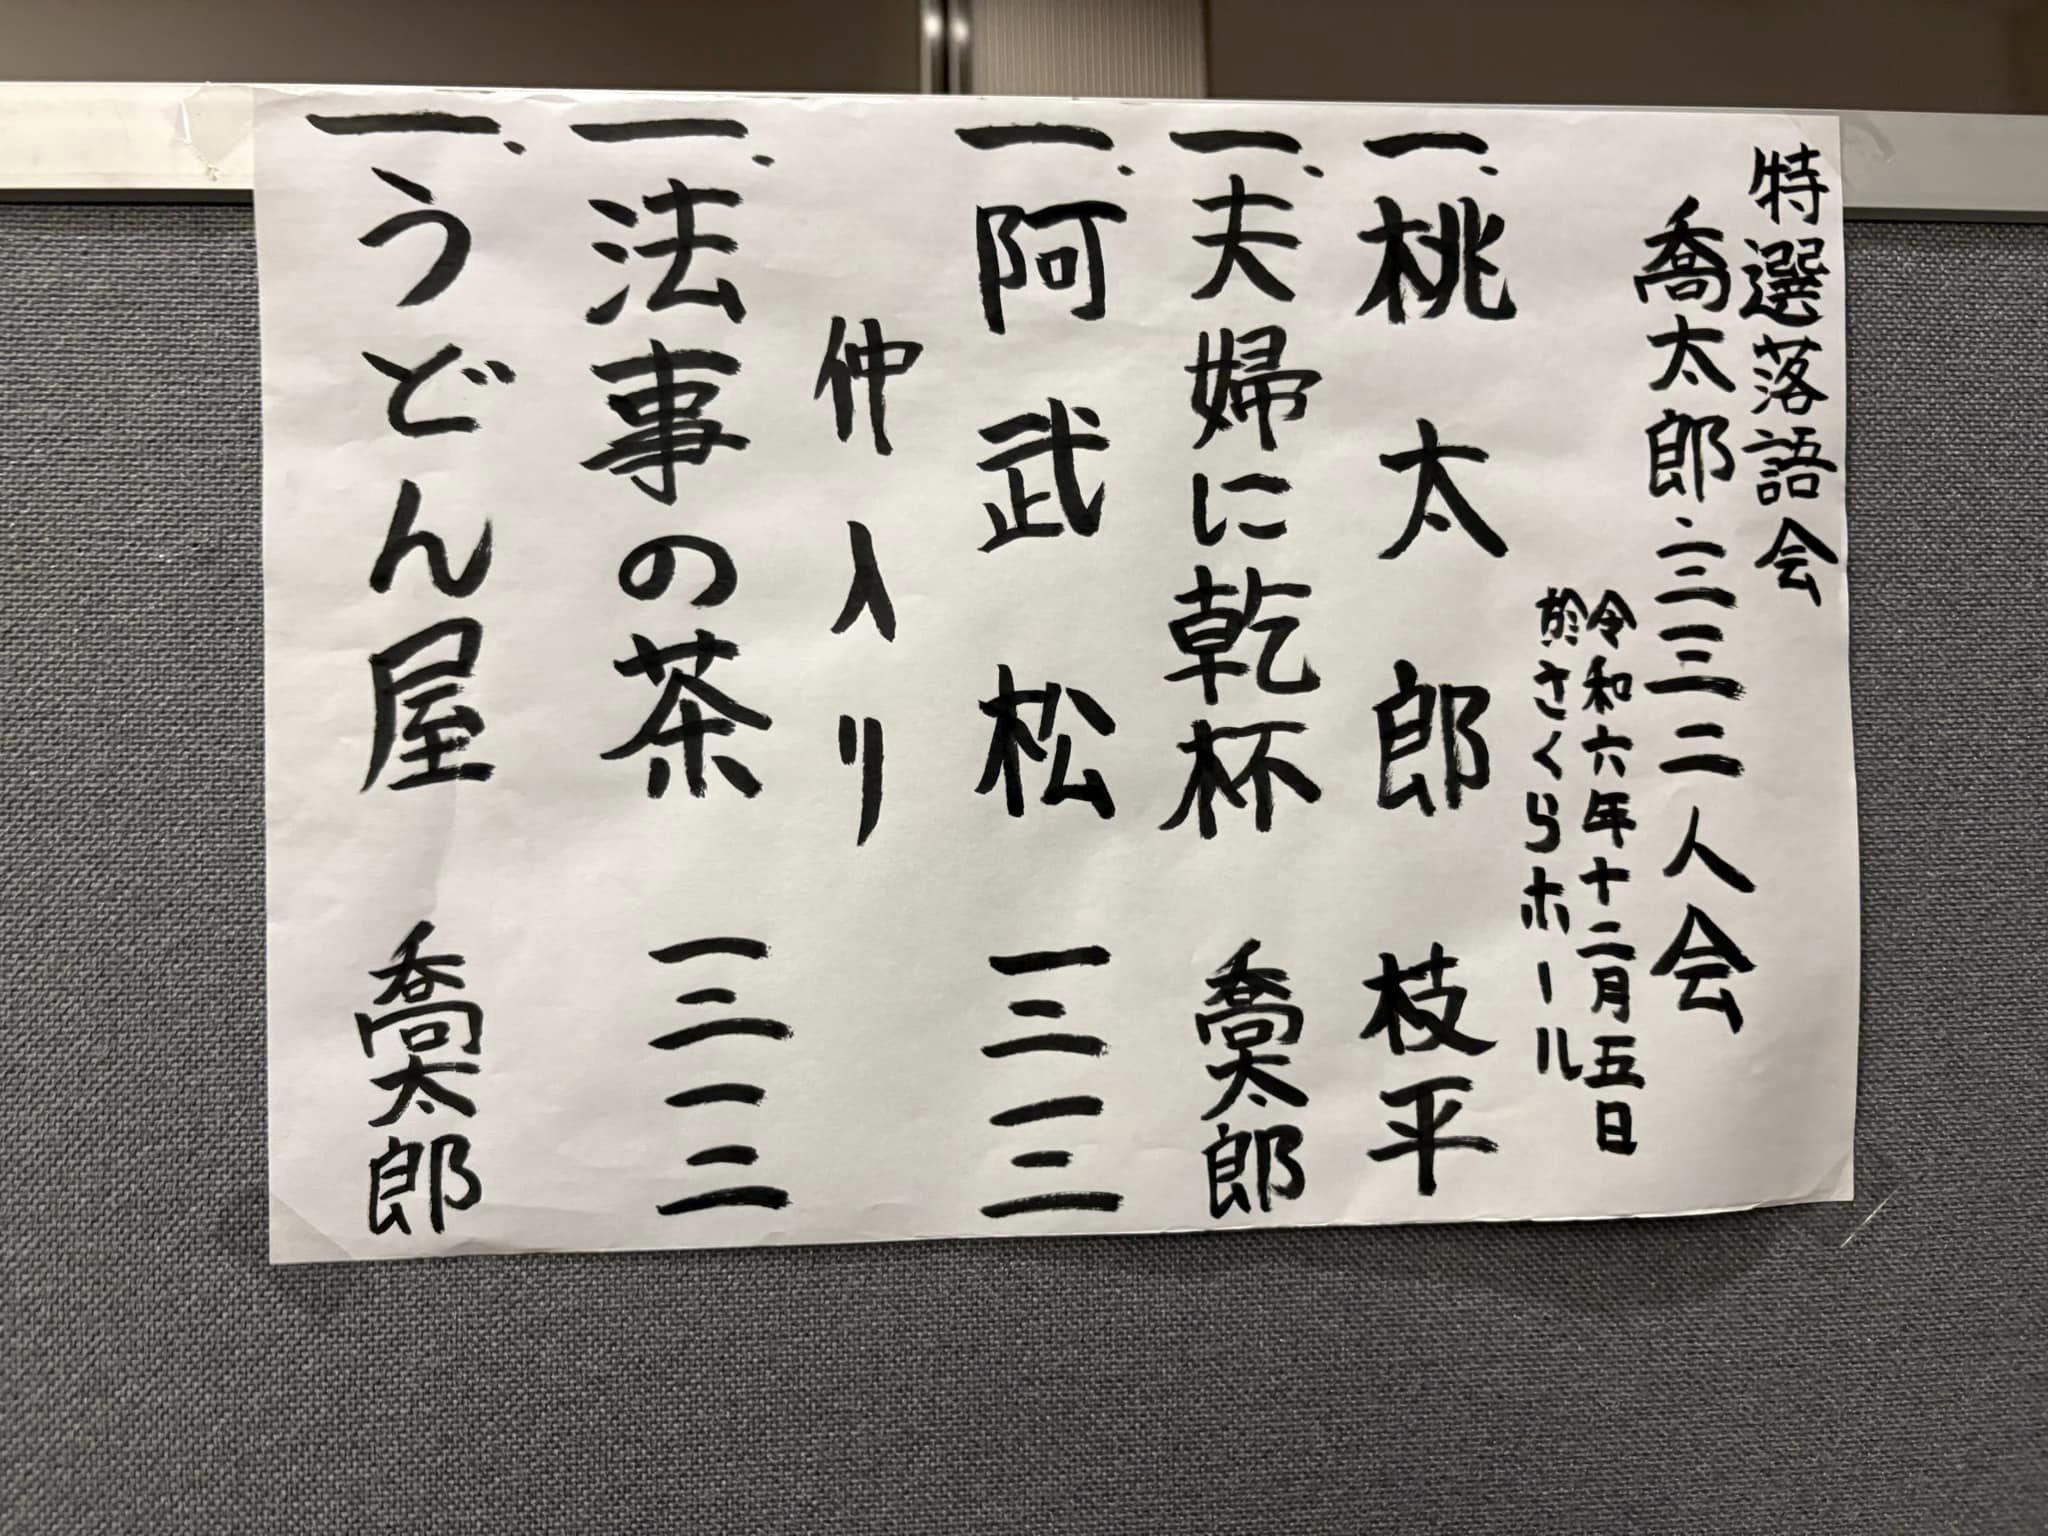 特選落語会
喬太郎・三三二人会
令和六年十二月五日
於さくらホール
一、桃太郎 枝平
一、夫婦に乾杯 喬太郎
一、阿武松 三三
仲入り
一、法事の茶 三三
一、うどん屋 喬太郎